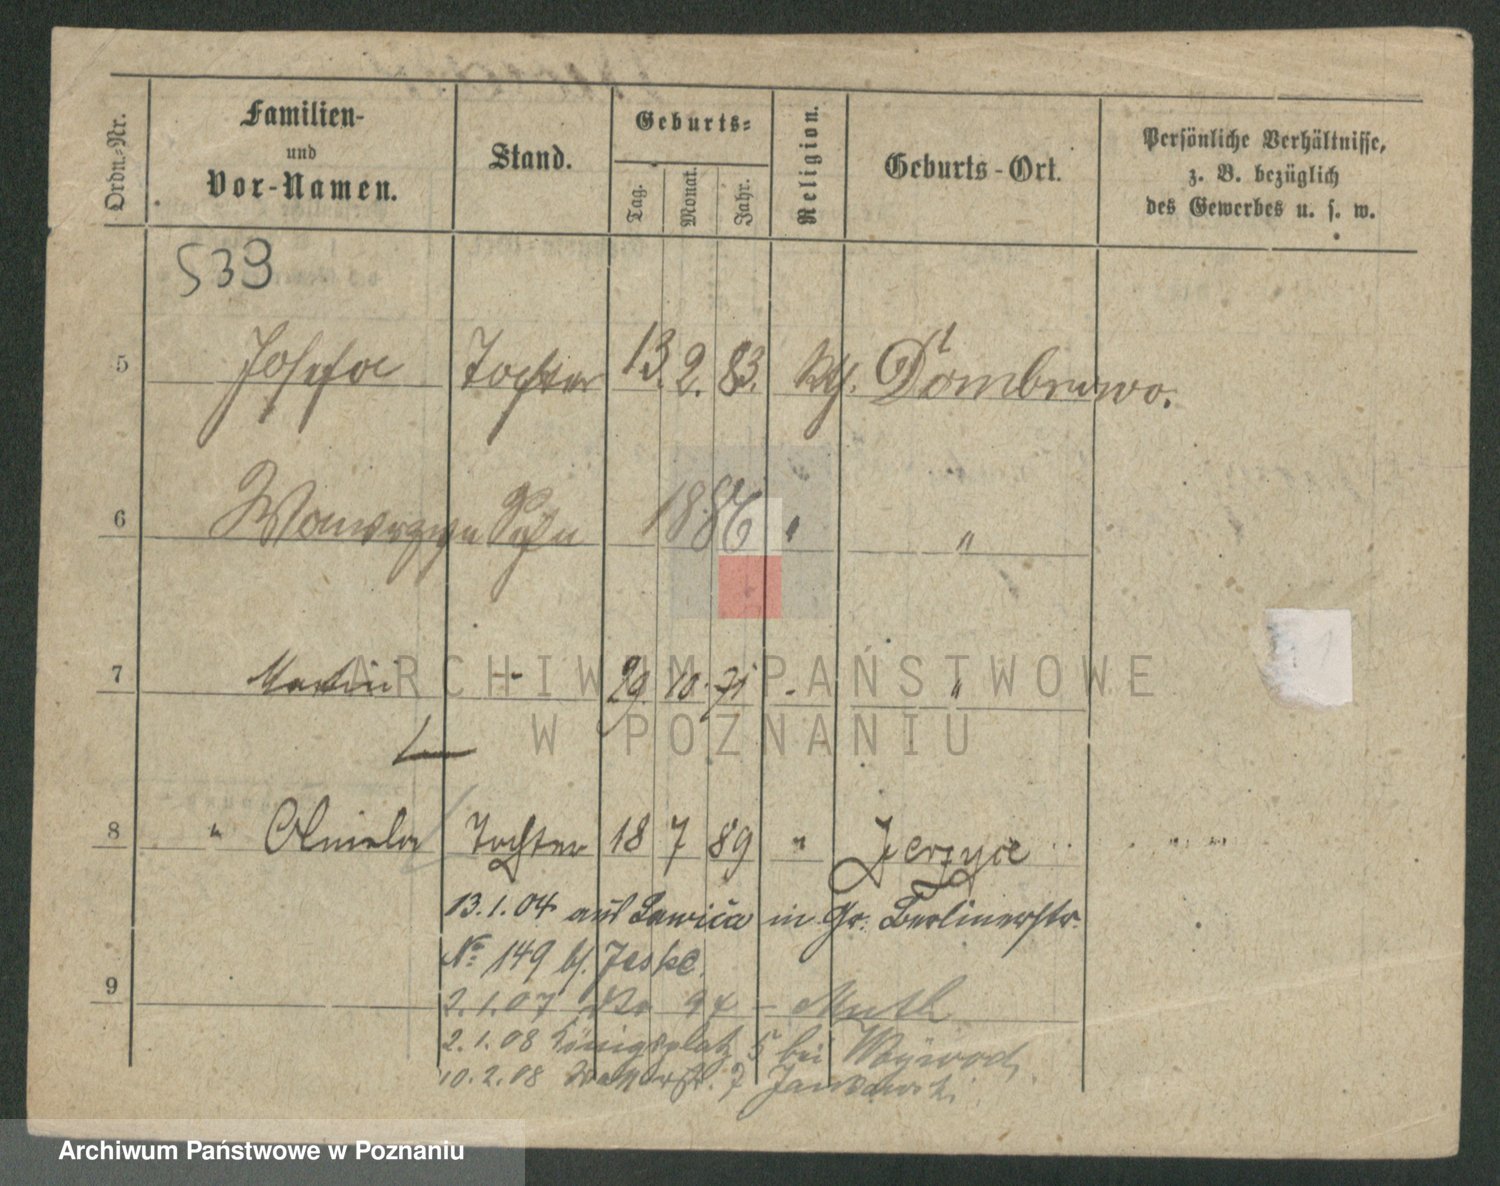 Ordn.-Nr.
Familien-
und
Vor-Namen.
Stand.
Geburts-
Tag.
Monat.
Jahr.
Religion.
Geburts-Ort.
Persönliche Verhältnisse,
z. B. bezüglich
des Gewerbes u. s. w.
533
5 Josefa Tochter 13. 2. 83. kth. Dombrowo.
6 Wawrzyn Sohn 1886 " "
7 Martin - 29. 10. 71 - "
8 " Tochter 18 7 89 " Jerzyce " "
13.1.04 aus Lawica in Gr. Berlinerstr.
No 149 b/. Jeske.
9
2.1.07 94 - Muth
2.1.08 Königsplatz 5 bei Woywod
10.2.08 7 Jankowski
ARCHIWUM PAŃSTWOWE
W POZNANIU
Archiwum Państwowe w Poznaniu